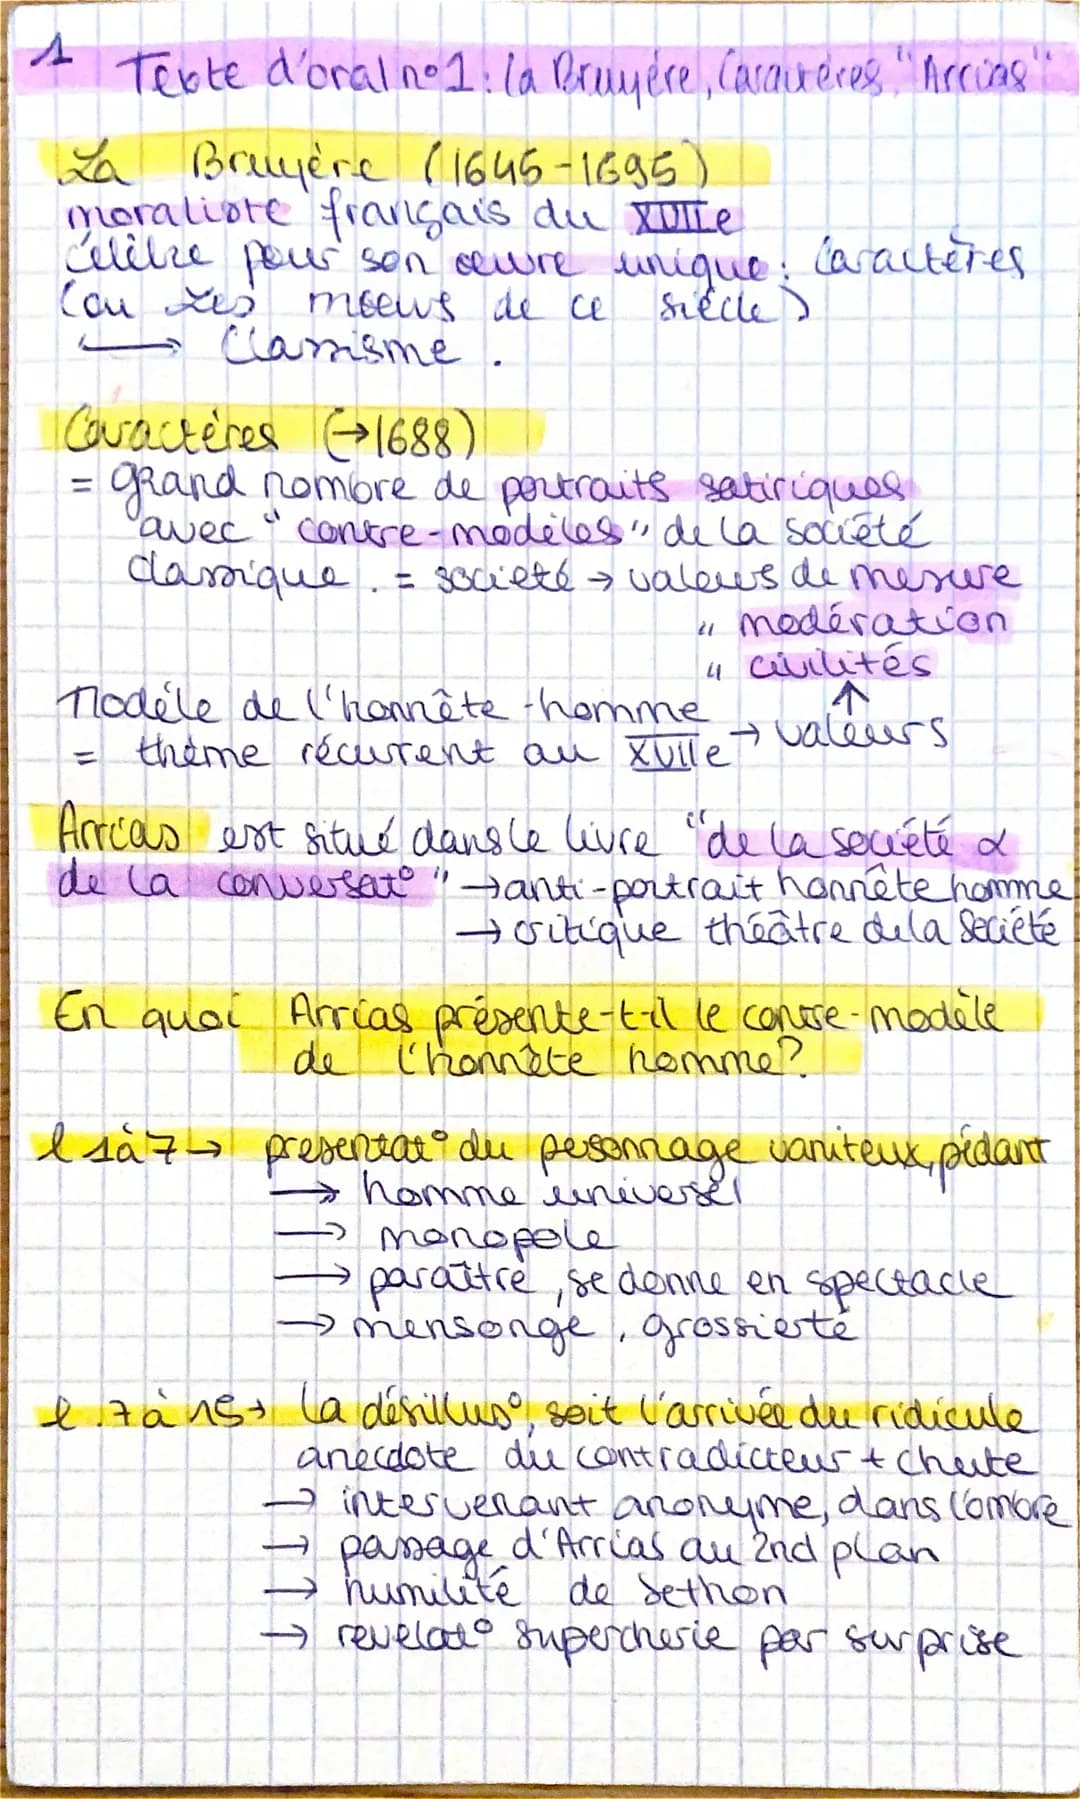 1
Texte d'oral n°1 : La Bruyère, Caractères, "Arrias"
La Bruyère (1645-1695)
moraliste français du XVIIe
célèbre pour son œuvre unique : Caractères
(ou Les mœurs de ce siècle)
→ Classisme.
Caractères (→1688)
= grand nombre de portraits satiriques
avec "contre-modèles" de la société
classique. = société → valeurs de mesure
" modération
" civilités
↑
Modèle de l'honnête-homme → valeurs
= thème récurrent au XVIIe
Arrias est situé dans le livre "de la société &
de la conversat°" → anti-portrait honnête homme
→ critique théâtre de la société
En quoi Arrias présente-t-il le contre-modèle
de l'honnête homme?
l 1à7 → presentat° du personnage vaniteux, pédant
→ homme universel
→ monopole
→ paraître, se donne en spectacle
→ mensonge, grossierté
l.7 à 15 → la désillus°, soit l'arrivée du ridicule
anecdote du contradicteur + chute
→ intervenant anonyme, dans l'ombre
→ passage d'Arrias au 2nd plan
→ humilité de Sethon
→ revelat° supercherie par surprise